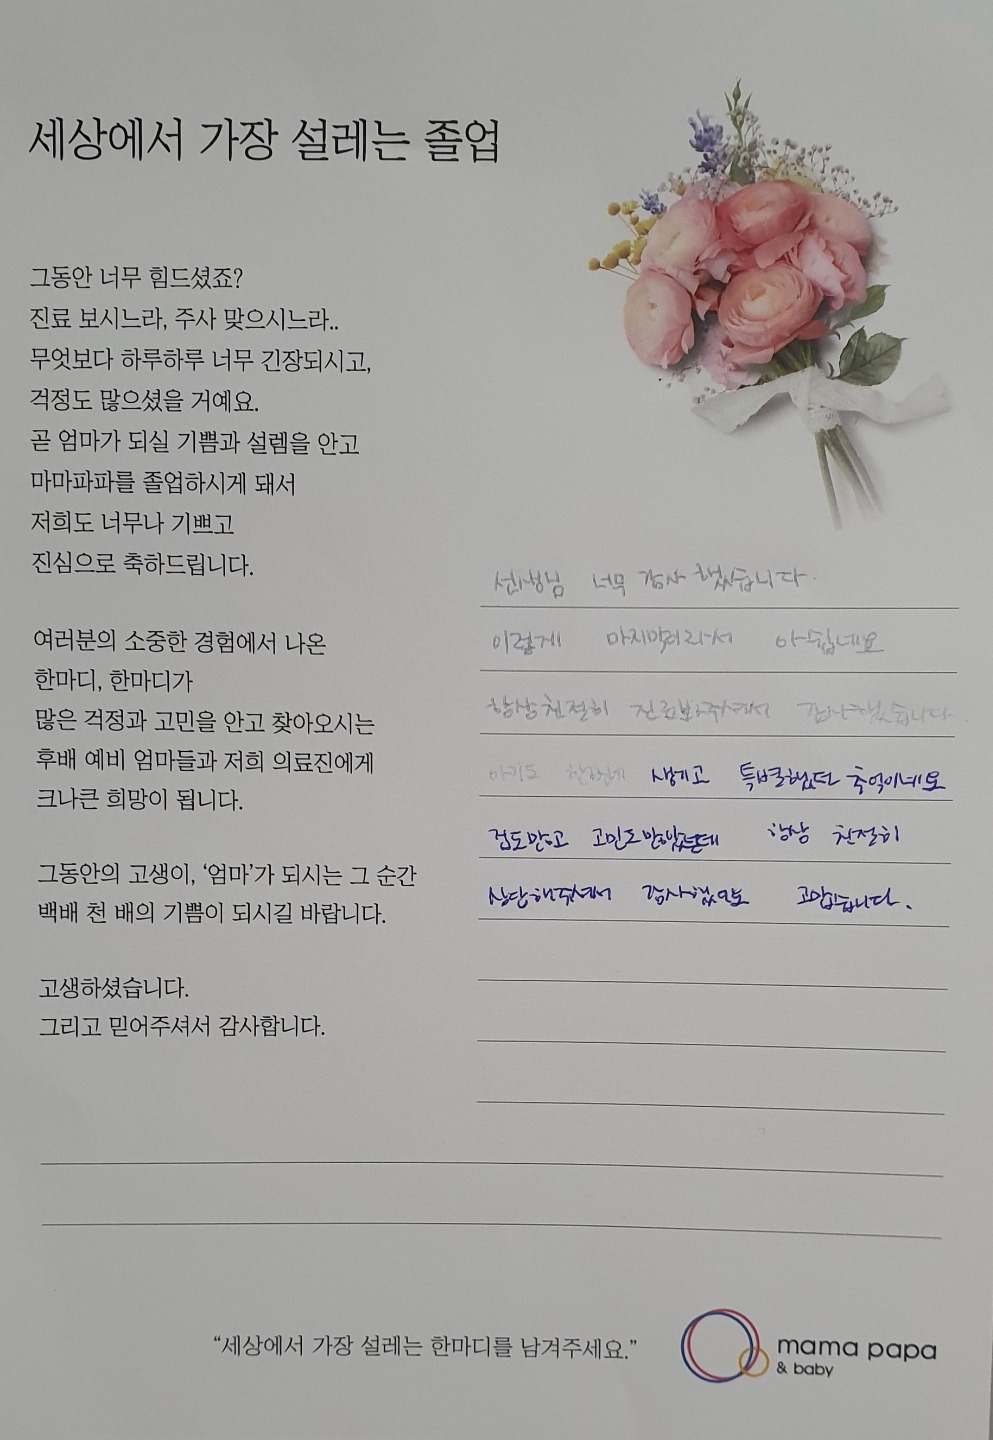 세상에서 가장 설레는 졸업
그동안 너무 힘드셨죠?
진료 보시느라, 주사 맞으시느라..
무엇보다 하루하루 너무 긴장되시고,
걱정도 많으셨을 거예요.
곧 엄마가 되실 기쁨과 설렘을 안고
마마파파를 졸업하시게 돼서
저희도 너무나 기쁘고
진심으로 축하드립니다.
여러분의 소중한 경험에서 나온
한마디, 한마디가
많은 걱정과 고민을 안고 찾아오시는
후배 예비 엄마들과 저희 의료진에게
크나큰 희망이 됩니다.
그동안의 고생이, ‘엄마’가 되시는 그 순간
백배 천 배의 기쁨이 되시길 바랍니다.
고생하셨습니다.
그리고 믿어주셔서 감사합니다.
선생님 너무 감사했습니다.
이렇게 마지막이라서 아쉽네요
항상 친절히 진료봐주셔서 감사했습니다.
생기고 특별했던 추억이네요
겁도많고 고민도많았는데 항상 친절히
상담해주셔서 감사했으며 고맙습니다.
“세상에서 가장 설레는 한마디를 남겨주세요.”
mama papa
& baby